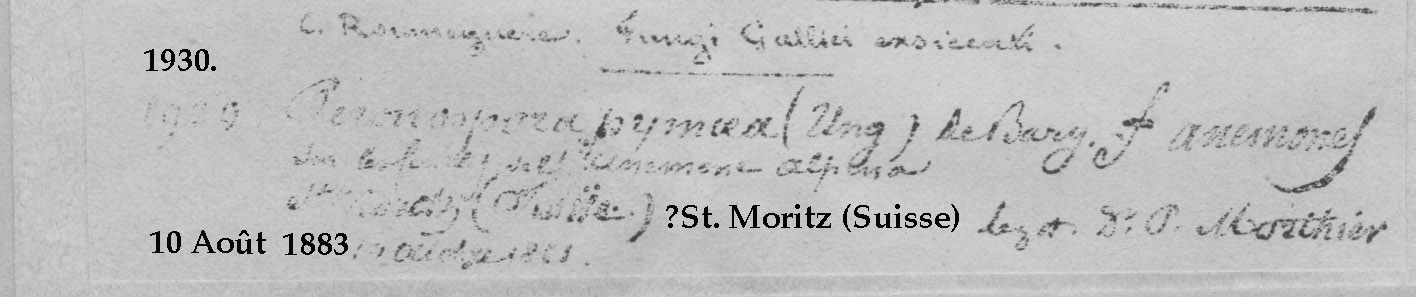 C. Roumeguère. Fungi Gallici exsiccati.
1930.
1929 Peronospora pymaea (Ung) de Bary. f anemones
Sur les feuilles de l'anemone alpina
St. Moritz (Suisse.) ?St. Moritz (Suisse) legit. Dr. P. Morthier
10 Août 1883